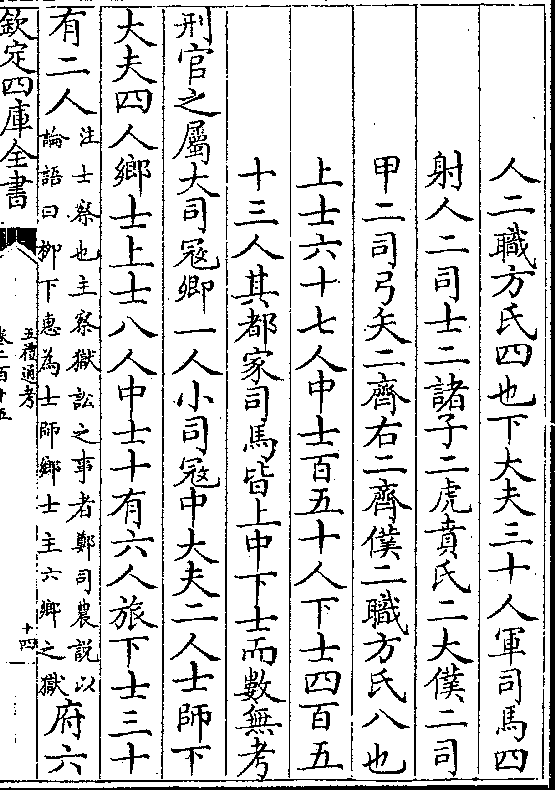 人二職方氏四也下大夫三十人軍司馬四
射人二司士二諸子二虎賁氏二大僕二司
甲二司弓矢二齊右二齊僕二職方氏八也
上士六十七人中士百五十人下士四百五
十三人其都家司馬皆上中下士而數無考
刑官之屬大司冦卿一人小司冦中大夫二人士師下
大夫四人鄉士上士八人中士十有六人旅下士三十
有二人
注士察也主察獄訟之事者鄭司農説以
論語曰柳下惠為士師鄉士主六鄉之獄
府六
欽定四庫全書
五禮通考
卷二百十五
十四